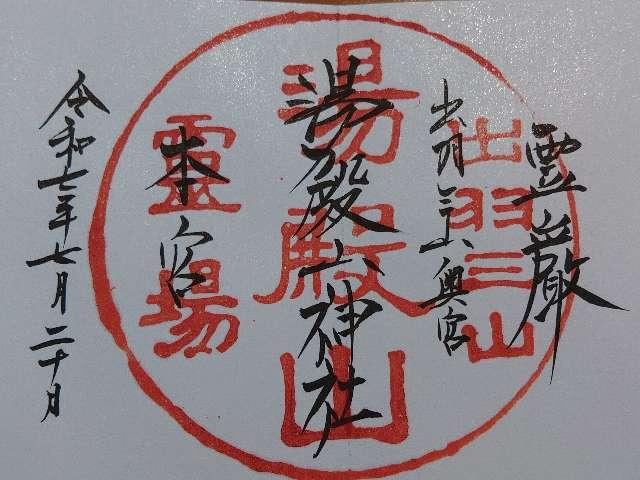 霊巌
出羽三山奥宮
湯殿山神社
本宮
令和七年七月二十日
出羽三山
湯殿山
靈場